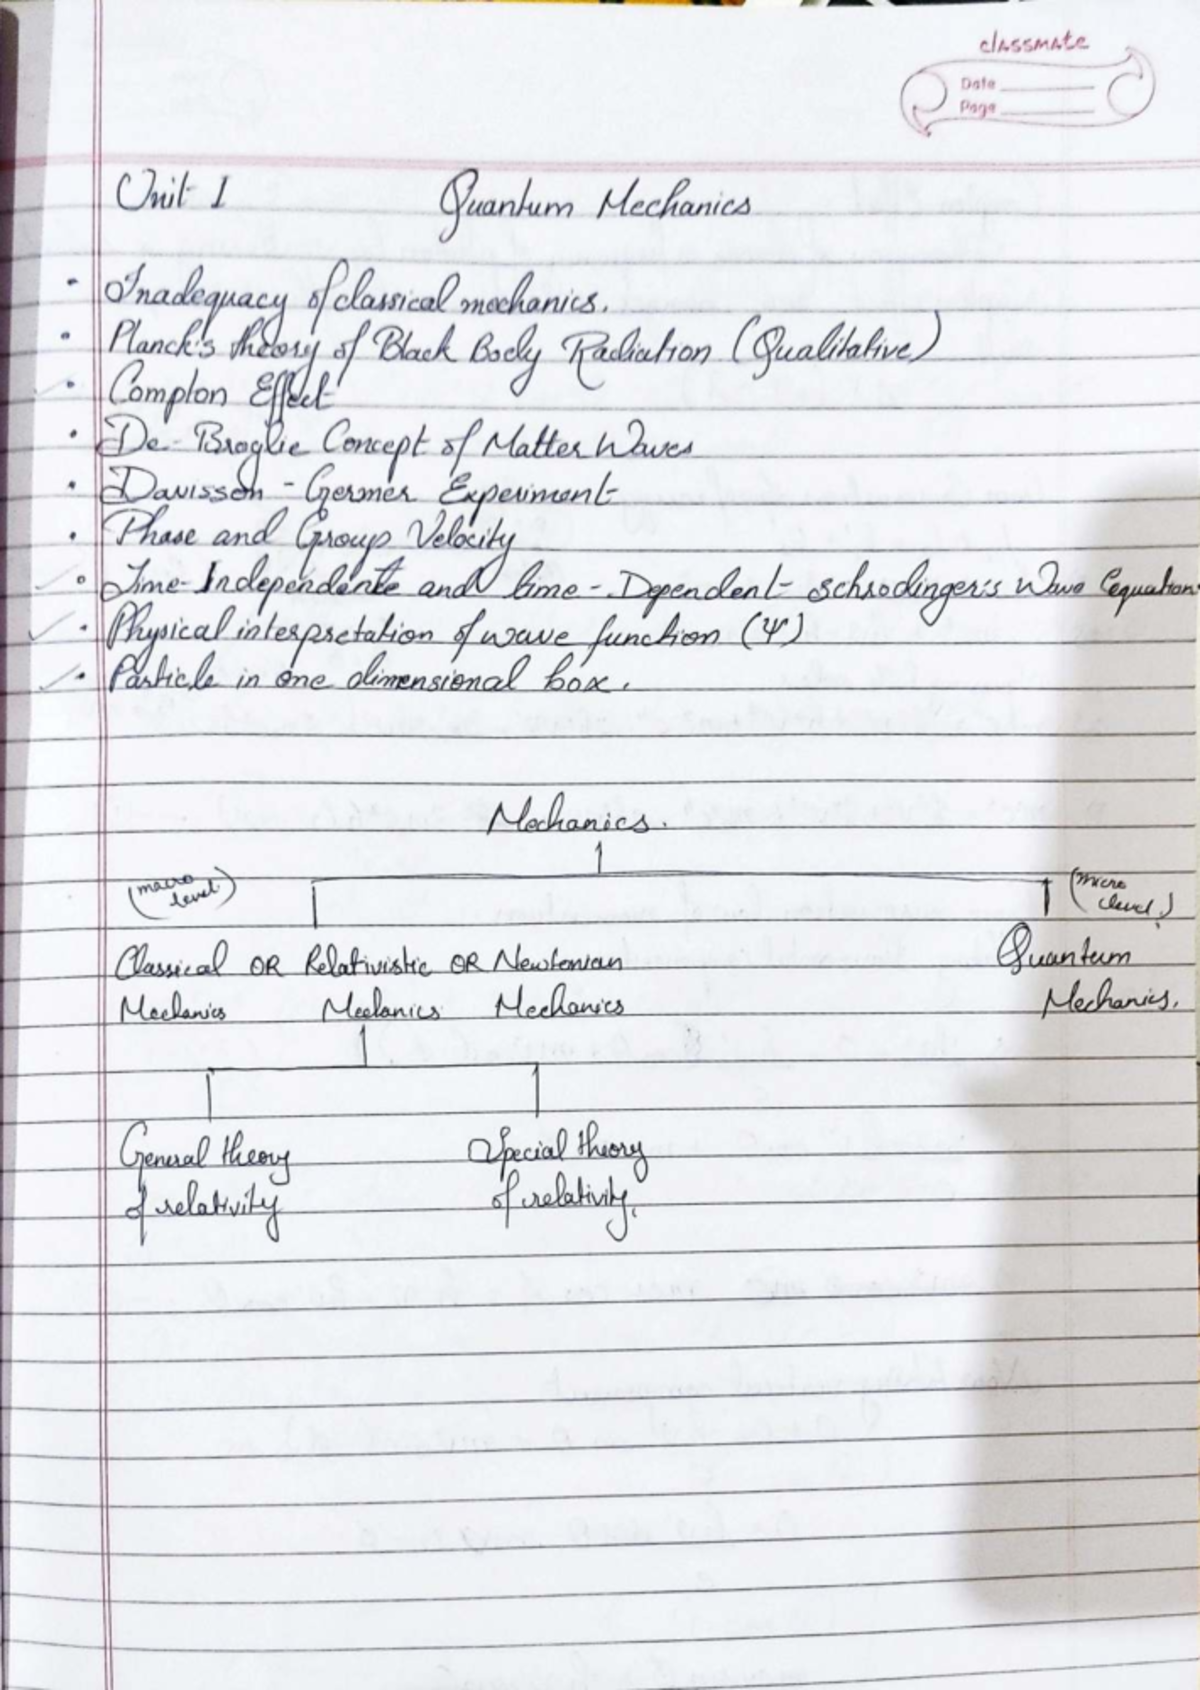 classmate
Date
Page
Unit 1 Quantum Mechanics
• Inadequacy of classical mechanics.
• Planck's theory of Black Body Radiation (Qualitative)
• Compton Effect
• De-Broglie Concept of Matter Waves
• Davisson - Germer Experiment
• Phase and Group Velocity
• Time-Independente and time-Dependent schrodinger's Wave equation
• Physical interpretation of wave function (Ψ)
• Particle in one dimensional box.
Mechanics.
(macro level) (micro level)
Classical OR Relativistic OR Newtonian Quantum
Mechanics Mechanics Mechanics Mechanics.
General theory Special theory
of relativity of relativity.